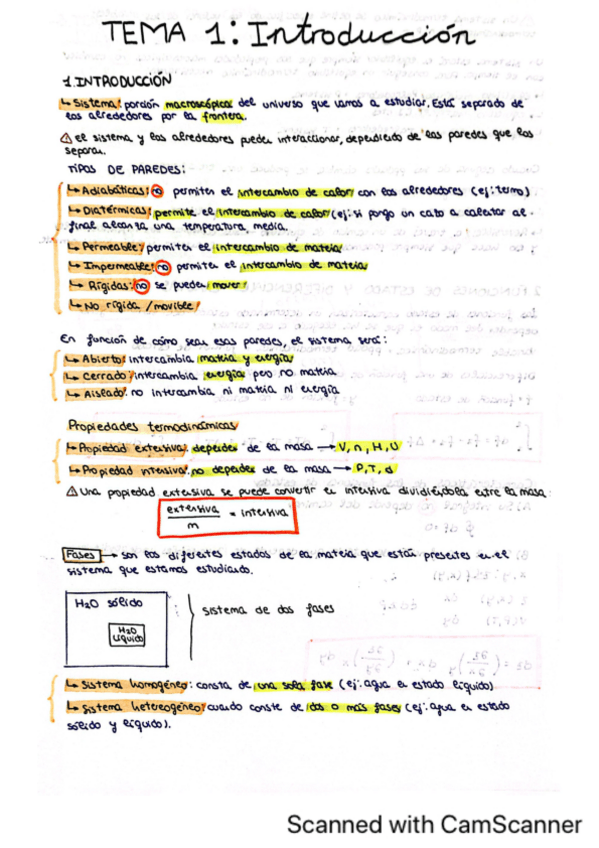 TEMA 1: Introducción
1. INTRODUCCIÓN
↳ Sistema: porción macroscópica del universo que vamos a estudiar. Está separado de
los alrededores por la frontera.
⚠ El sistema y los alrededores pueden interaccionar, dependiendo de las paredes que los
separan.
TIPOS DE PAREDES:
↳ Adiabáticas: no permiten el intercambio de calor con los alrededores (ej: termo)
↳ Diatérmicas: permite el intercambio de calor (ej: si pongo un cazo a calentar al
final alcanza una temperatura media.
↳ Permeable: permiten el intercambio de materia
↳ Impermeable: no permiten el intercambio de materia
↳ Rígidas: no se pueden mover
↳ No rígida / movible:
En función de cómo sean esas paredes, el sistema será:
↳ Abierto: intercambia materia y energía
↳ Cerrado: intercambia energía pero no materia
↳ Aislado: no intercambia ni materia ni energía
Propiedades termodinámicas
↳ Propiedad extensiva: depende de la masa → V, n, H, U
↳ Propiedad intensiva: no depende de la masa → P, T, d
⚠ Una propiedad extensiva se puede convertir en intensiva dividiéndola entre la masa:
extensiva / m = intensiva
Fases → son los diferentes estados de la materia que están presentes en el
sistema que estamos estudiando.
H2O sólido
H2O
líquido
sistema de dos fases
↳ Sistema homogéneo: consta de una sola fase (ej: agua en estado líquido)
↳ Sistema heterogéneo: cuando conste de dos o más fases (ej: agua en estado
sólido y líquido).
Scanned with CamScanner